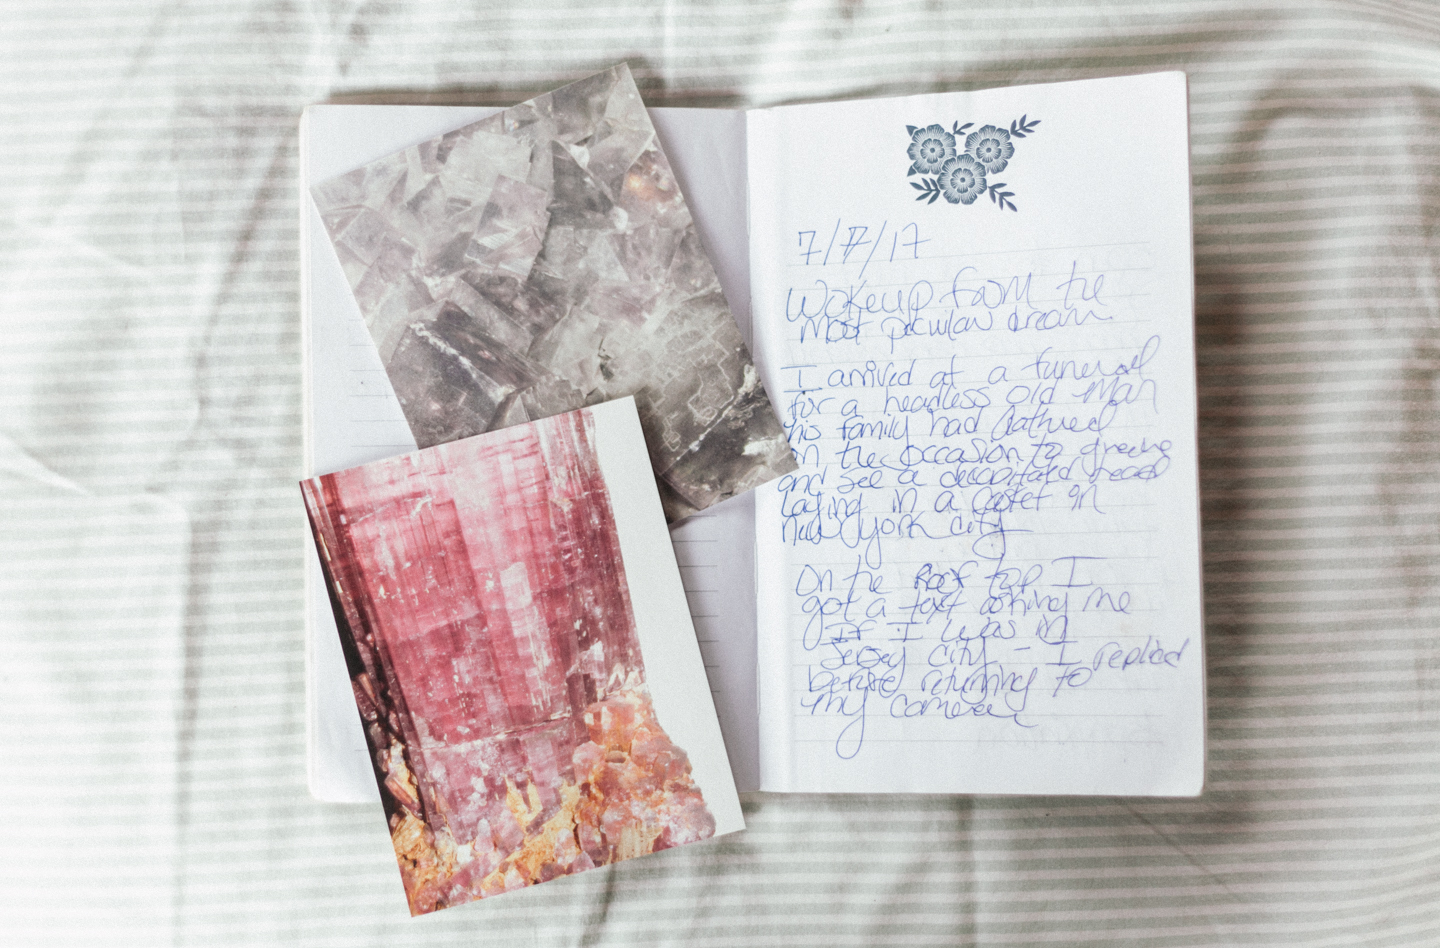 7/7/17
Wokeup from the
most peculiar dream.
I arrived at a funeral
for a headless old man
his family had gathered
on the occasion to grieve
and see a decapitated head
laying in a casket in
new york city
On the Roof top I
got a text asking me
If I was in
Jersey city - I replied
before returning to
my camera